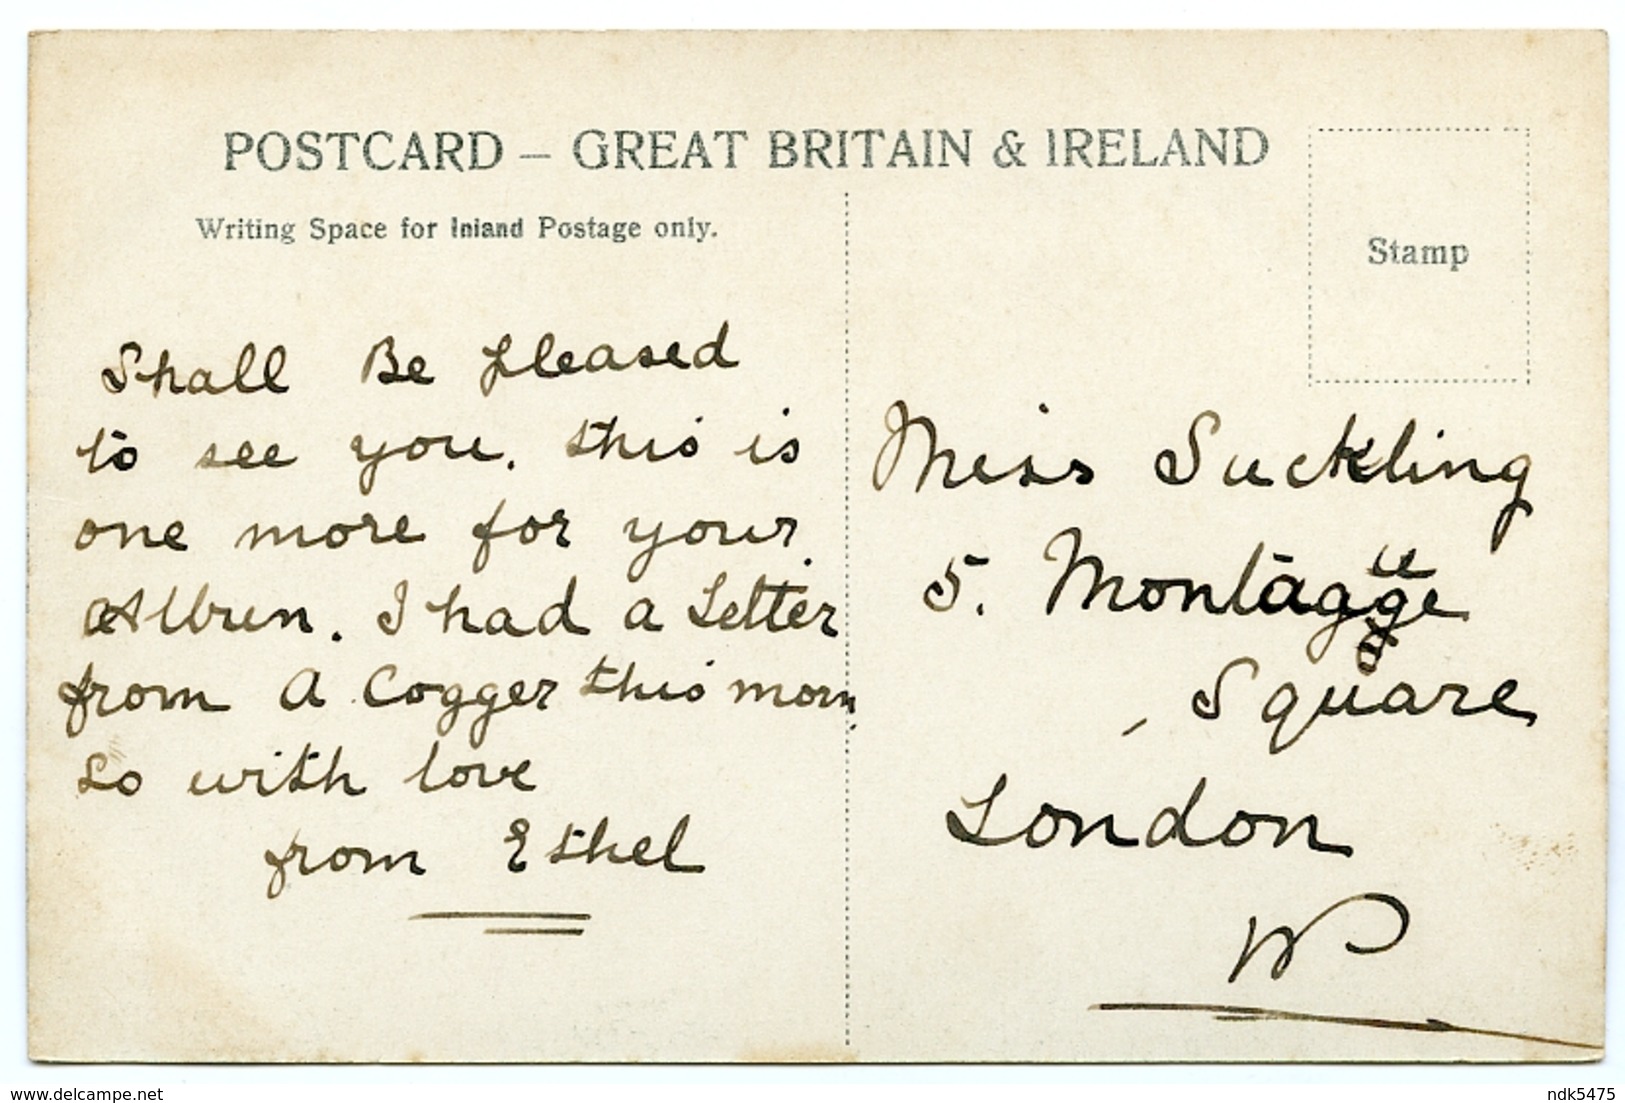 POSTCARD – GREAT BRITAIN & IRELAND
Writing Space for Inland Postage only.
Stamp
Shall Be pleased
to see you. this is
one more for your
Albren. I had a Letter
from A Cogger this morn,
so with love
from Ethel
Miss Suckling
5. Montague
Square
London
W
delcampe.net
ndk5475